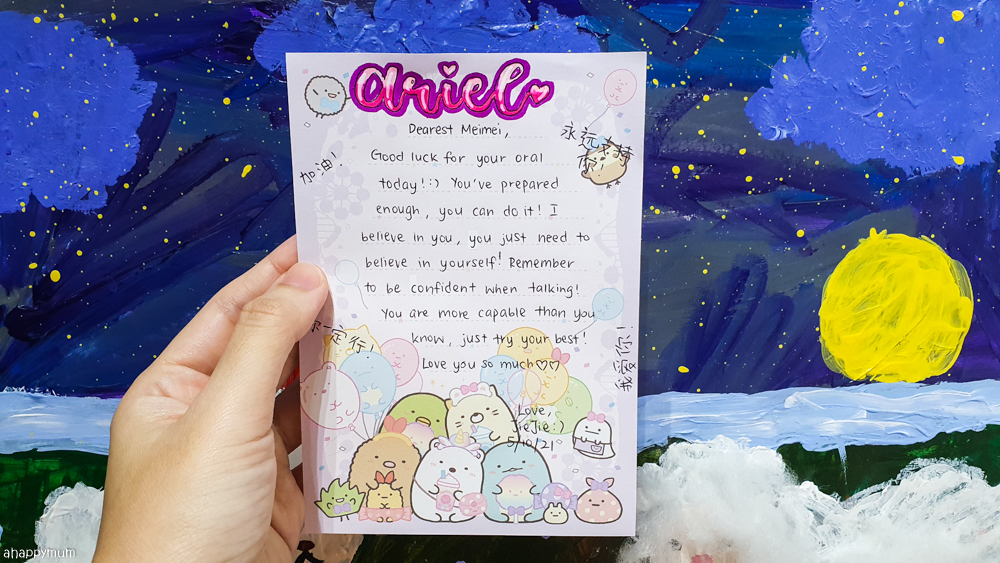 ariel
Dearest Meimei,
永远
加油!
Good luck for your oral
today! :) You've prepared
enough, you can do it! I
believe in you, you just need to
believe in yourself! Remember
to be confident when talking!
You are more capable than you
know, just try your best!
一定行
我爱你!
Love you so much♡♡
Love,
JieJie :)
5/10/21
ahappymum